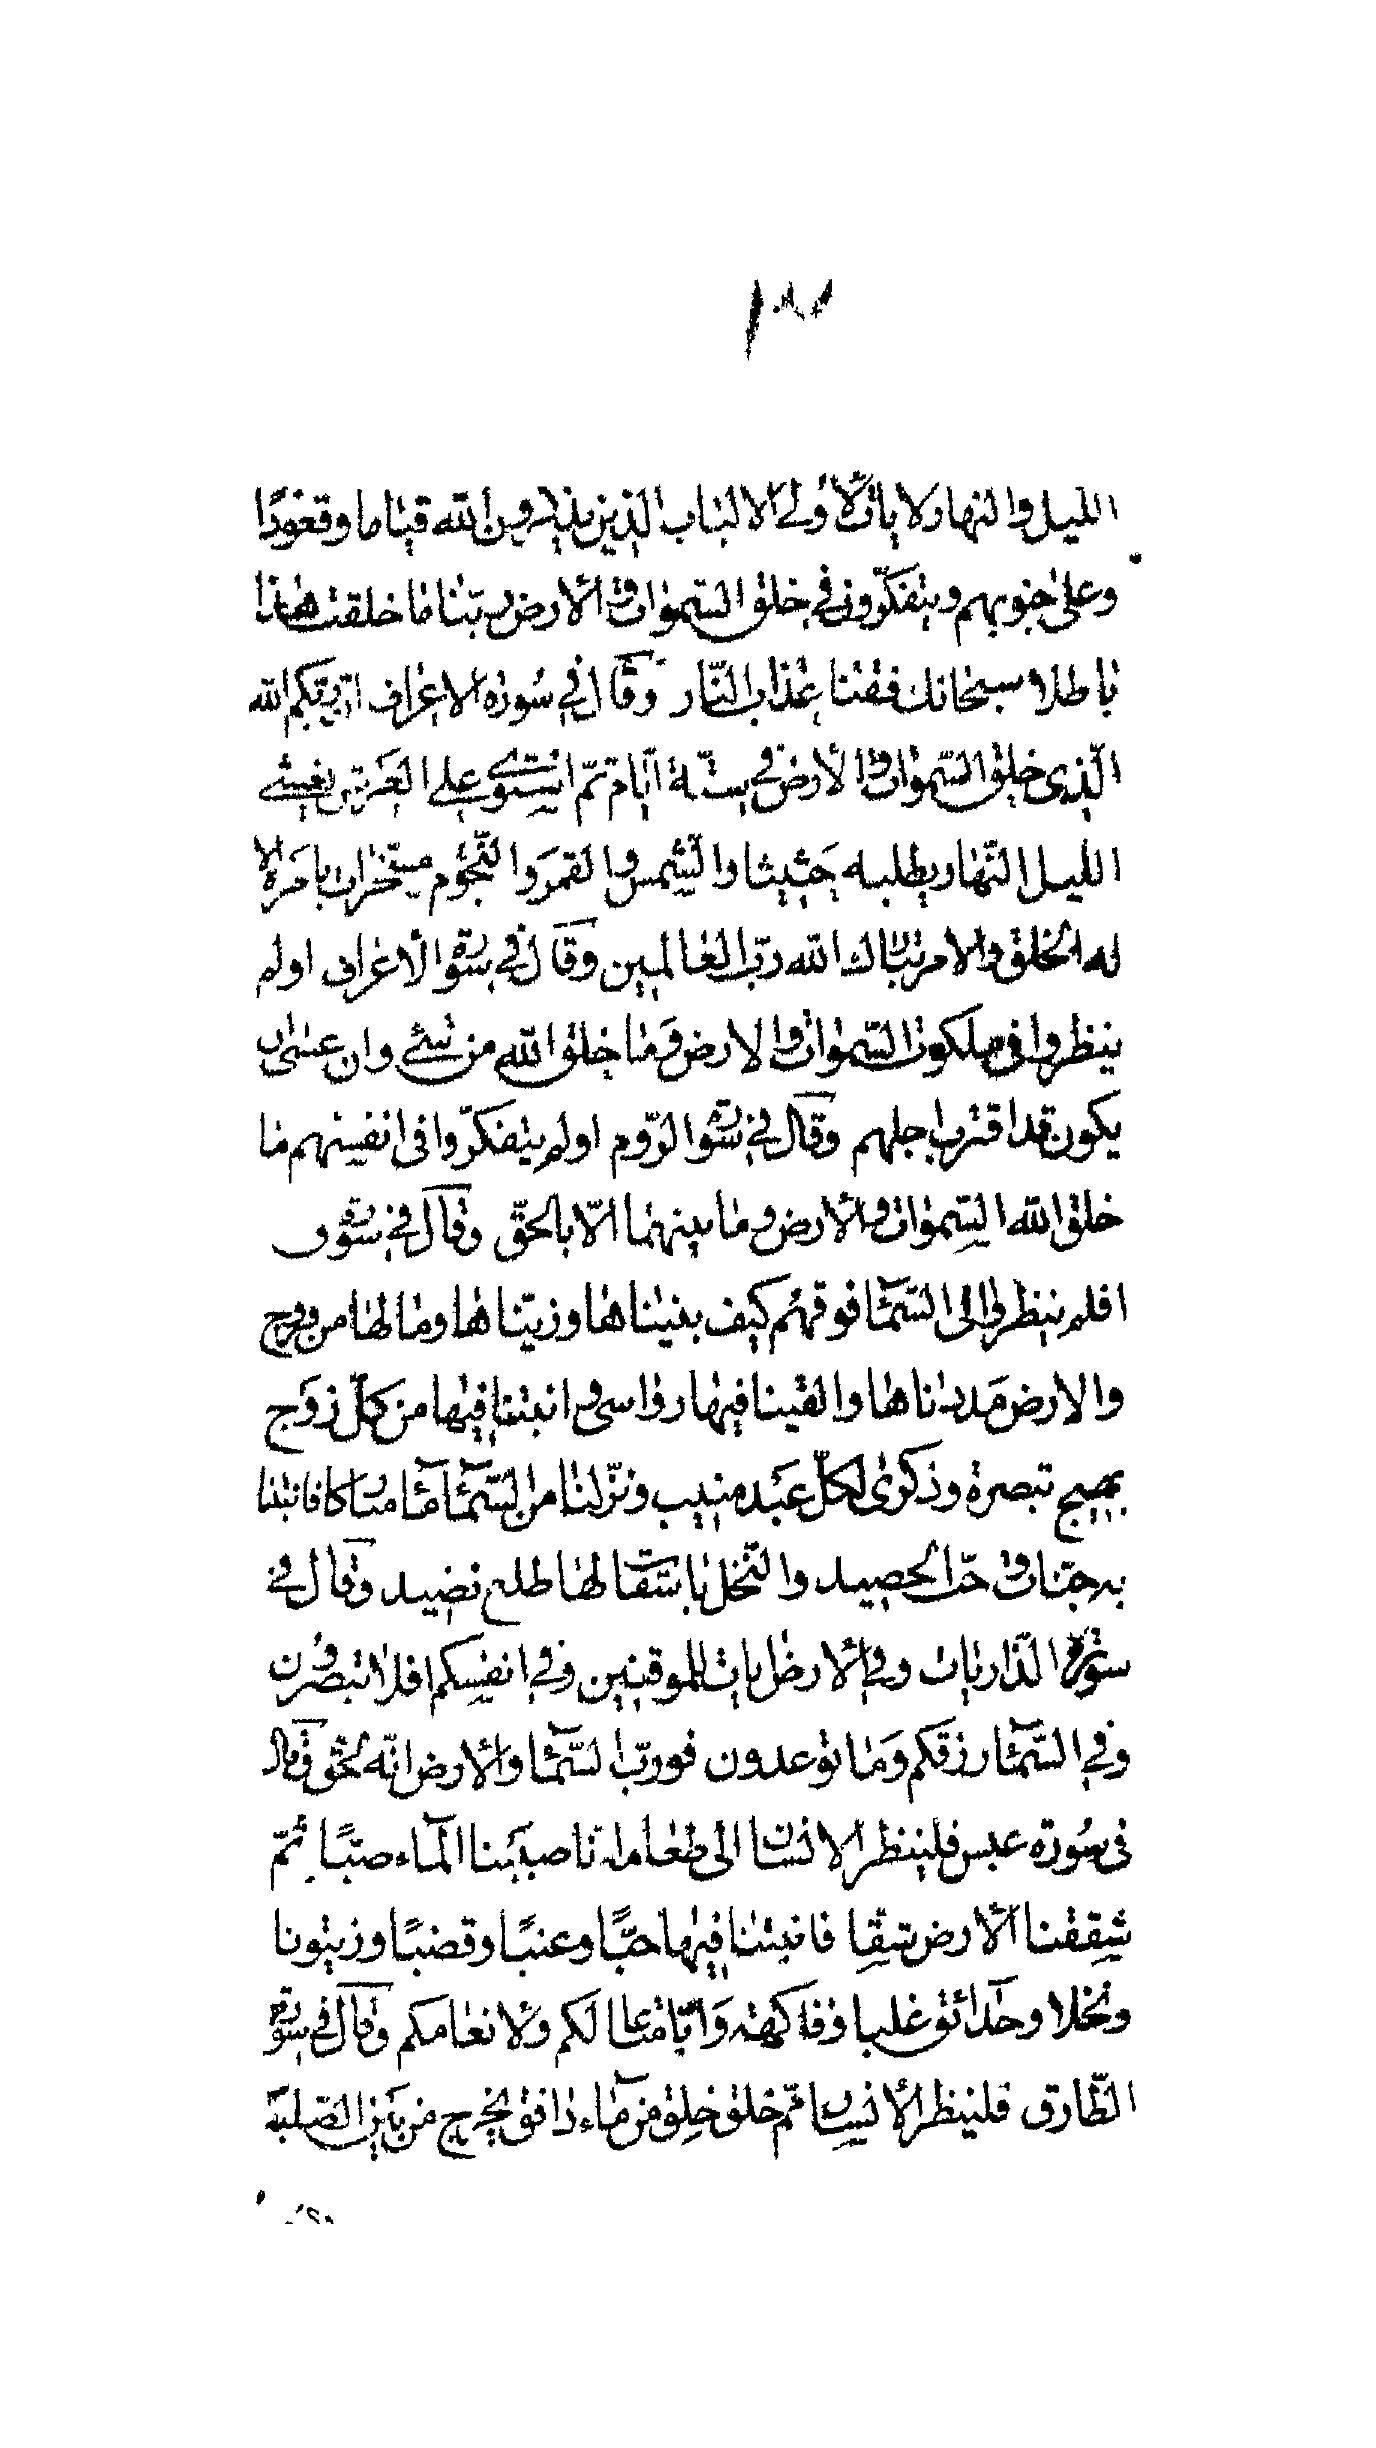 الليل والنهار لايات لاولى الالباب الذين يذكرون الله قياما وقعودًا
وعلى جنوبهم ويتفكّرون في خلق السموات والارض ربّنا ما خلقت هذا
باطلا سبحانك فقنا عذاب النّار وقال في سورة الاعراف انّ ربّكم الله
الّذى خلق السّموات والأرض في ستّة ايّام ثمّ استوى على العرش يغشى
الليل النّهار يطلبه حثيثا والشّمس والقمر والنّجوم مسخّرات بامره الا
له الخلق والامر تبارك الله ربّ العالمين وقال في سورة الأعراف اولم
ينظروا فى ملكوت السّموات والارض وما خلق الله من شئ وان عسى ان
يكون قد اقترب اجلهم وقال في سورة الرّوم اولم يتفكّروا فى انفسهم ما
خلق الله السّموات والأرض وما بينهما الّا بالحقّ وقال في سورة ق
افلم ينظروا الى السّمآء فوقهم كيف بنيناها وزيّنّاها وما لها من فروج
والارض مددناها والقينا فيها رواسى وانبتنا فيها من كلّ زوج
بهيج تبصرة وذكرى لكلّ عبد منيب ونزّلنا من السّمآء مآء مباركا فانبتنا
به جنّات وحبّ الحصيد والنّخل باسقات لها طلع نضيد وقال في
سورة الذّاريات وفي الأرض ايات للموقنين وفي انفسكم افلا تبصرون
وفي السّمآء رزقكم وما توعدون فوربّ السّمآء والأرض انّه لحقّ وقال
فى سورة عبس فلينظر الانسان الى طعامه انّا صببنا المآء صبًّا ثمّ
شققنا الأرض شقّا فانبتنا فيها حبًّا وعنبًا وقضبًا وزيتونا
ونخلا وحدائق غلبا وفاكهة وابّا متاعا لكم ولانعامكم وقال في سورة
الطّارق فلينظر الأنسان ممّ خلق خلق من مآء دافق يخرج من بين الصّلب